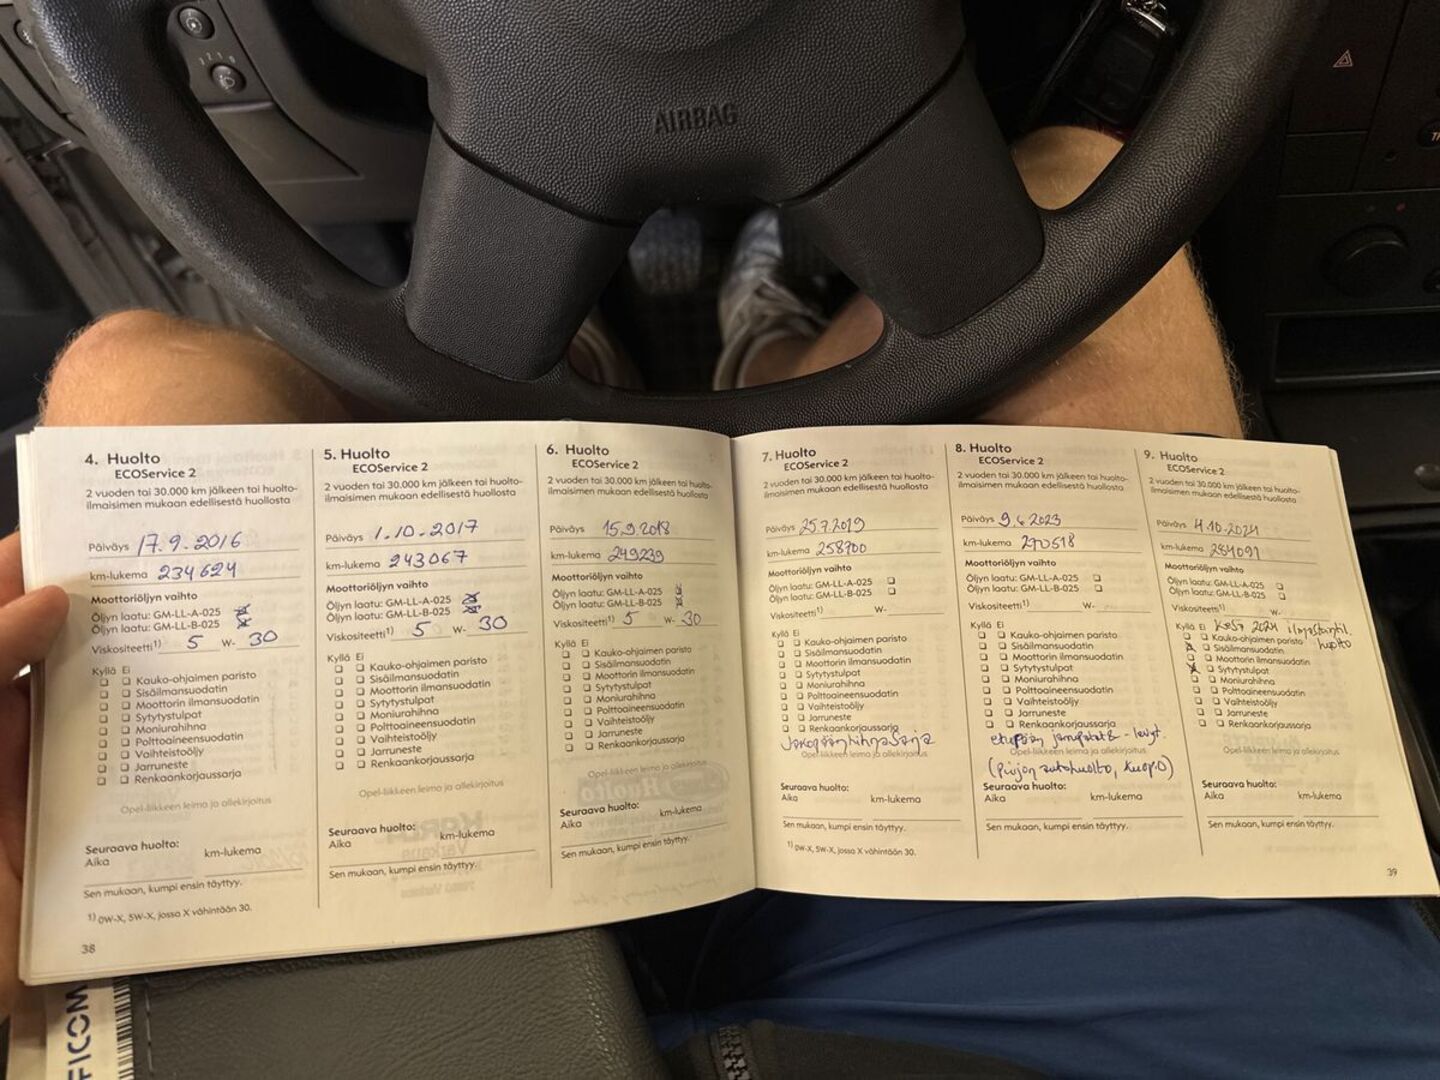 AIRBAG
4. Huolto
ECOService 2
2 vuoden tai 30.000 km jälkeen tai huolto-
ilmaisimen mukaan edellisestä huollosta
Päiväys 17.9.2016
km-lukema 234624
Moottoriöljyn vaihto
Öljyn laatu: GM-LL-A-025
Öljyn laatu: GM-LL-B-025
Viskositeetti1) 5 W- 30
Kyllä Ei
Kauko-ohjaimen paristo
Sisäilmansuodatin
Moottorin ilmansuodatin
Sytytystulpat
Moniurahihna
Polttoaineensuodatin
Vaihteistoöljy
Jarruneste
Renkaankorjaussarja
Opel-liikkeen leima ja allekirjoitus
Seuraava huolto:
Aika km-lukema
Sen mukaan, kumpi ensin täyttyy.
1) 0W-X, 5W-X, jossa X vähintään 30.
38
5. Huolto
ECOService 2
2 vuoden tai 30.000 km jälkeen tai huolto-
ilmaisimen mukaan edellisestä huollosta
Päiväys 1.10.2017
km-lukema 243067
Moottoriöljyn vaihto
Öljyn laatu: GM-LL-A-025
Öljyn laatu: GM-LL-B-025
Viskositeetti1) 5 W- 30
Kyllä Ei
Kauko-ohjaimen paristo
Sisäilmansuodatin
Moottorin ilmansuodatin
Sytytystulpat
Moniurahihna
Polttoaineensuodatin
Vaihteistoöljy
Jarruneste
Renkaankorjaussarja
Opel-liikkeen leima ja allekirjoitus
Seuraava huolto:
Aika km-lukema
Sen mukaan, kumpi ensin täyttyy.
6. Huolto
ECOService 2
2 vuoden tai 30.000 km jälkeen tai huolto-
ilmaisimen mukaan edellisestä huollosta
Päiväys 15.9.2018
km-lukema 249239
Moottoriöljyn vaihto
Öljyn laatu: GM-LL-A-025
Öljyn laatu: GM-LL-B-025
Viskositeetti1) 5 W- 30
Kyllä Ei
Kauko-ohjaimen paristo
Sisäilmansuodatin
Moottorin ilmansuodatin
Sytytystulpat
Moniurahihna
Polttoaineensuodatin
Vaihteistoöljy
Jarruneste
Renkaankorjaussarja
Opel-liikkeen leima ja allekirjoitus
Seuraava huolto:
Aika km-lukema
Sen mukaan, kumpi ensin täyttyy.
7. Huolto
ECOService 2
2 vuoden tai 30.000 km jälkeen tai huolto-
ilmaisimen mukaan edellisestä huollosta
Päiväys 25.7.2019
km-lukema 258700
Moottoriöljyn vaihto
Öljyn laatu: GM-LL-A-025
Öljyn laatu: GM-LL-B-025
Viskositeetti1) W-
Kyllä Ei
Kauko-ohjaimen paristo
Sisäilmansuodatin
Moottorin ilmansuodatin
Sytytystulpat
Moniurahihna
Polttoaineensuodatin
Vaihteistoöljy
Jarruneste
Renkaankorjaussarja
Jakopäänhihnasarja
Opel-liikkeen leima ja allekirjoitus
Seuraava huolto:
Aika km-lukema
Sen mukaan, kumpi ensin täyttyy.
1) 0W-X, 5W-X, jossa X vähintään 30.
8. Huolto
ECOService 2
2 vuoden tai 30.000 km jälkeen tai huolto-
ilmaisimen mukaan edellisestä huollosta
Päiväys 9.6.2023
km-lukema 270518
Moottoriöljyn vaihto
Öljyn laatu: GM-LL-A-025
Öljyn laatu: GM-LL-B-025
Viskositeetti1) W-
Kyllä Ei
Kauko-ohjaimen paristo
Sisäilmansuodatin
Moottorin ilmansuodatin
Sytytystulpat
Moniurahihna
Polttoaineensuodatin
Vaihteistoöljy
Jarruneste
Renkaankorjaussarja
etupään jarrupalat & -levyt.
Opel-liikkeen leima ja allekirjoitus
autohuolto, Kuopio)
Seuraava huolto:
Aika km-lukema
Sen mukaan, kumpi ensin täyttyy.
9. Huolto
ECOService 2
2 vuoden tai 30.000 km jälkeen tai huolto-
ilmaisimen mukaan edellisestä huollosta
Päiväys 4.10.2024
km-lukema 284091
Moottoriöljyn vaihto
Öljyn laatu: GM-LL-A-025
Öljyn laatu: GM-LL-B-025
Viskositeetti1) W-
Kyllä Ei Kesä 2024 ilmastointil.
Kauko-ohjaimen paristo huolto
Sisäilmansuodatin
Moottorin ilmansuodatin
Sytytystulpat
Moniurahihna
Polttoaineensuodatin
Vaihteistoöljy
Jarruneste
Renkaankorjaussarja
Opel-liikkeen leima ja allekirjoitus
Seuraava huolto:
Aika km-lukema
Sen mukaan, kumpi ensin täyttyy.
39
FICOM